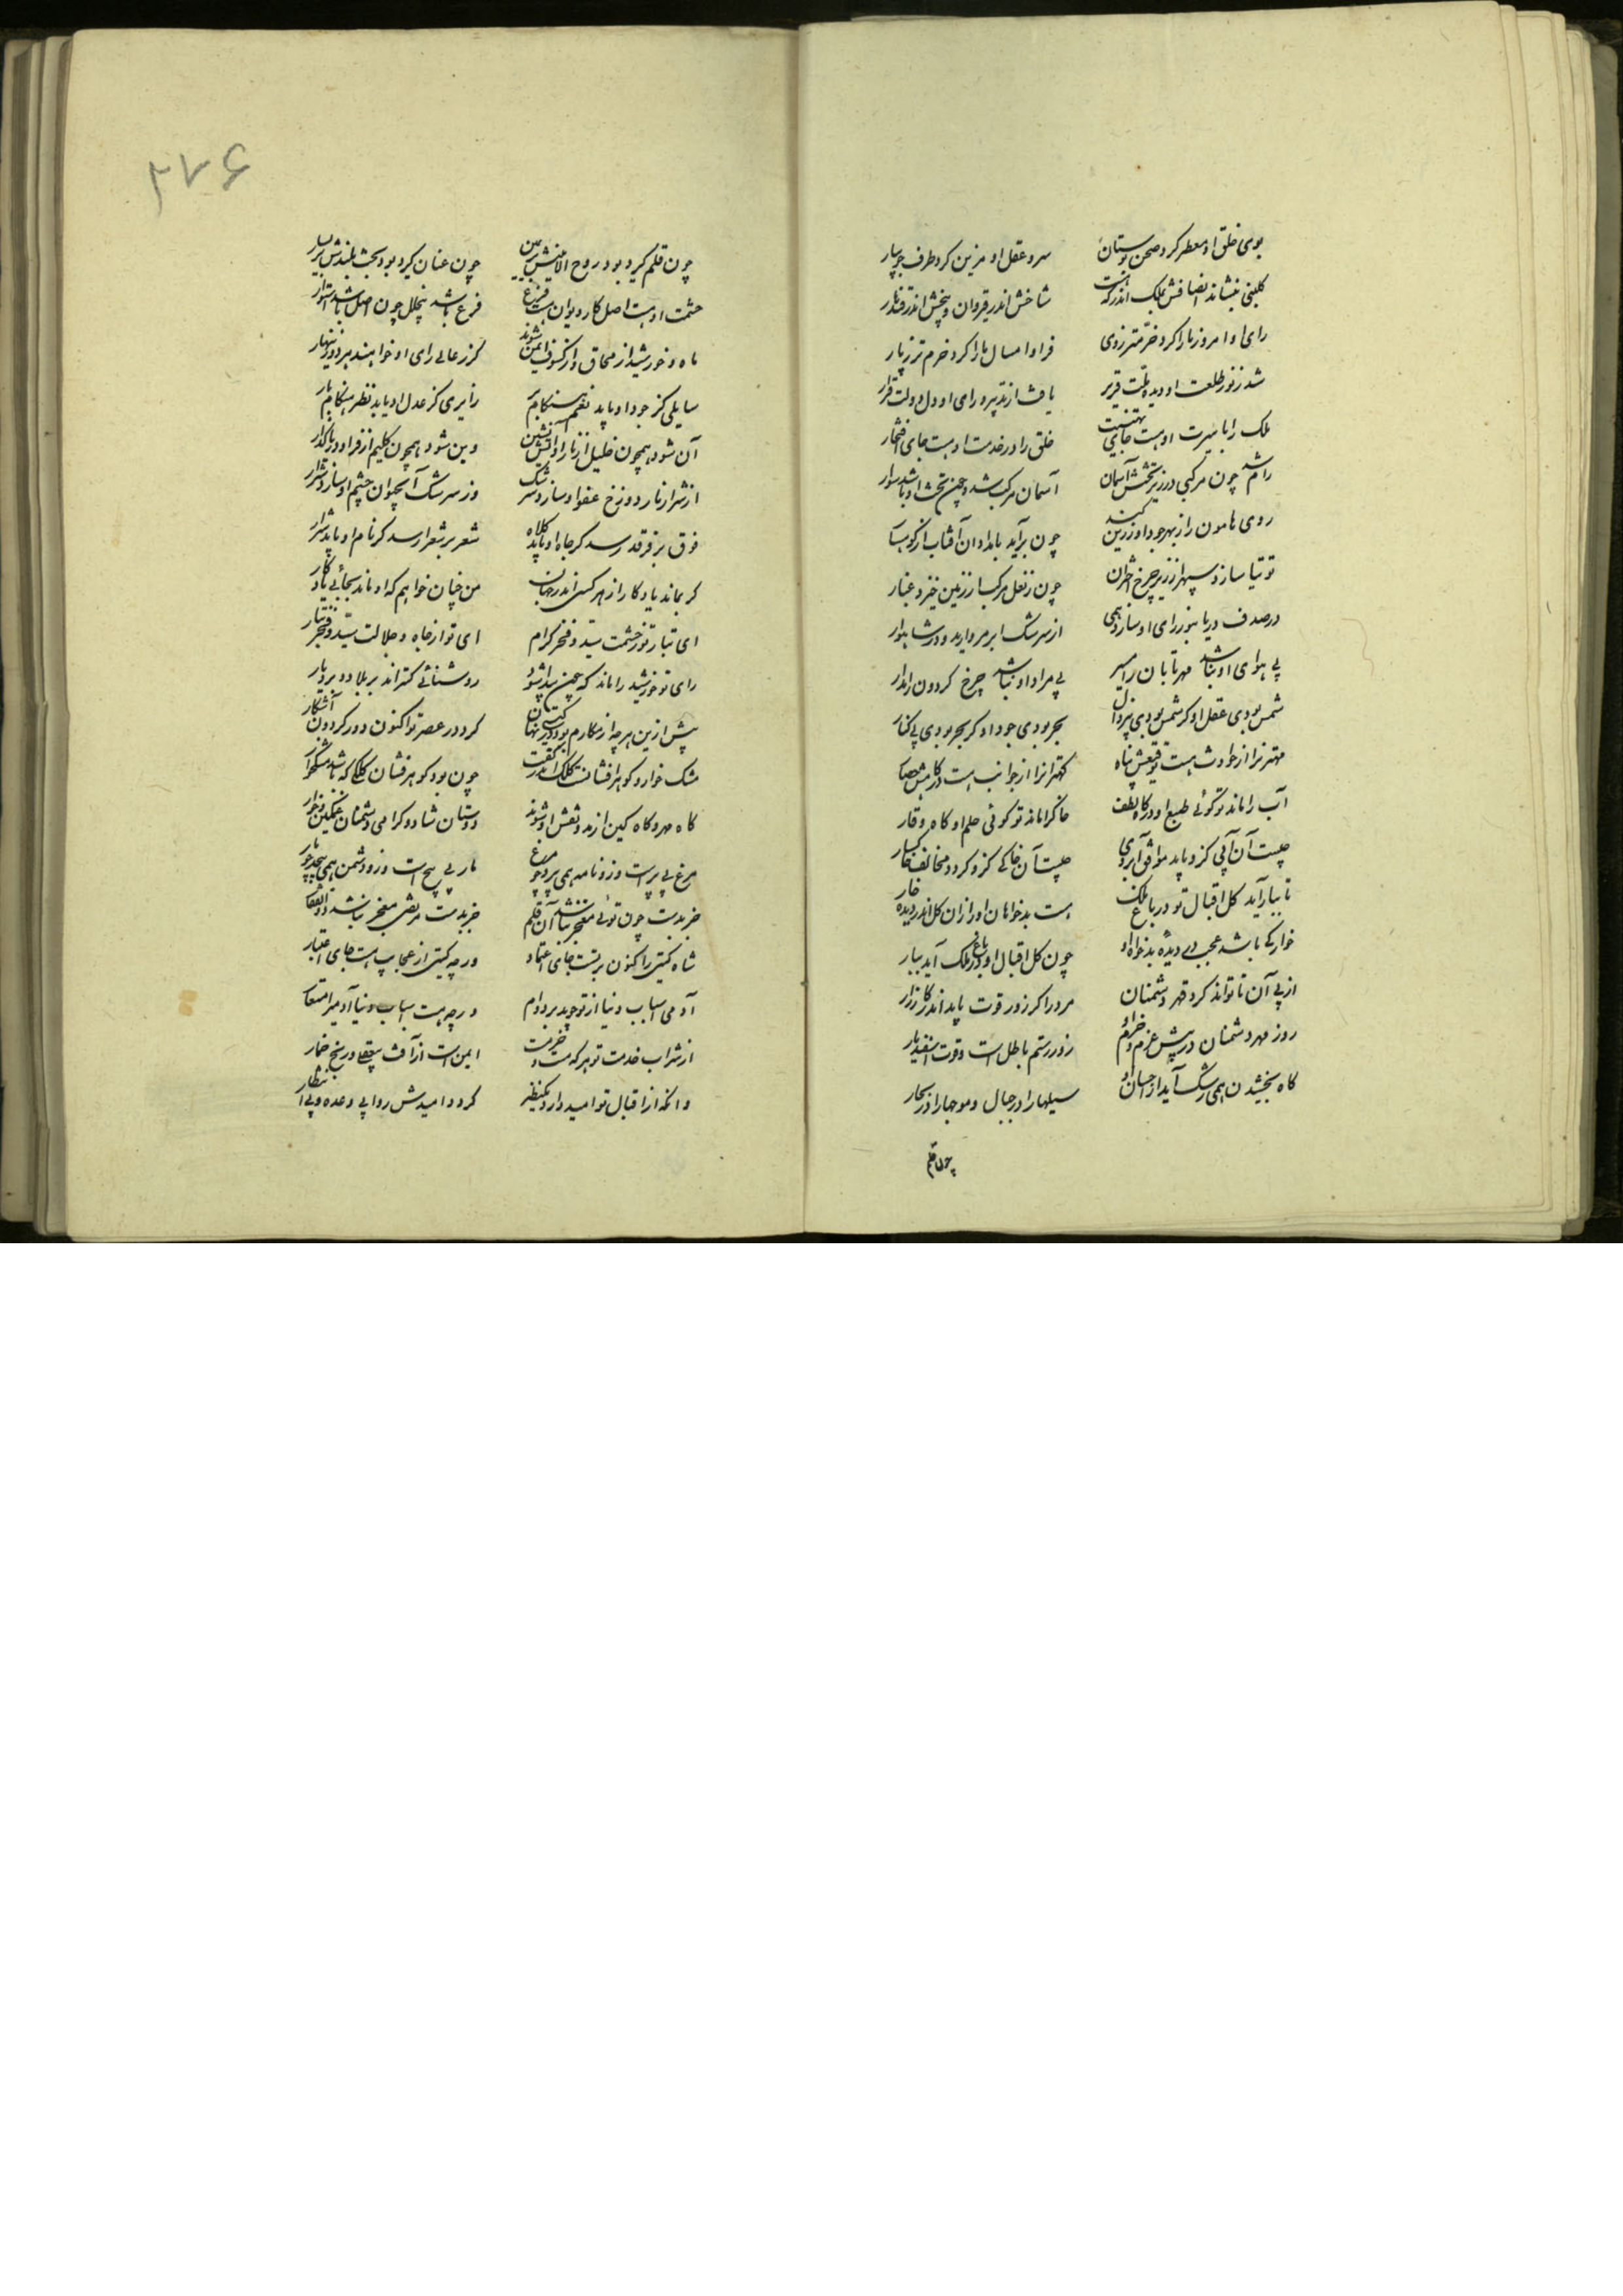 بوی خلق او معطر کرد صحن بوستان سرو عقل او مزین کرد طرف جویبار
کلبنی بنشاند انصافش بملک اندر که هست شاخش اندر قیروان و بیخش اندر قندهار
رای او امروز ما را کرد خرمتر ز دی فر او امسال ما را کرد خرم تر ز پار
شد ز نور طلعت او دیده ملت قریر یافت از تدبیر و رای او دل دولت قرار
ملک را با سیرت او هست جای تهنیت خلق را در خدمت او هست جای افتخار
رام شد چون مرکبی در زیر تختش آسمان آسمان مرکب شد چون بخت او باشد سوار
روی هامون را ز بهر جود او زرین کند چون برآید بامدادان آفتاب از کوهسار
توتیا سازد سپهر از زیر چرخ اختران چون ز نعل مرکب او از زمین خیزد غبار
در صدف دریا بنور رای او سازد همی از سرشک ابر مروارید و در شاهوار
بی هوای او نباشد مهر تابان را مسیر بی مراد او نباشد چرخ کردون را مدار
شمس بودی عقل او کر شمس بودی بی زوال بحر بودی جود او کر بحر بودی بی کنار
مهترانرا از حوادث هست توقیعش پناه کهترانرا از نوائب هست درکاهش حصار
آب را ماند تو کوئی طبع او در کاه لطف خاکرا ماند تو کوئی حلم او کاه وقار
چیست آن آبی کزو یابد موافق آبروی چیست آن خاکی کزو کردد مخالف خاکسار
تا ببار آید کل اقبال تو در باغ ملک هست بدخواهان او را زان کل اندر دیده خار
خوار کی باشد عجب در دیده بدخواه او چون کل اقبال او در باغ ملک آید ببار
از پی آن تا تواند کرد قهر دشمنان مرد را کر زور و قوت باید اندر کارزار
روز مهر دشمنان در پیش عزم و حزم او زور رستم باطل است و قوت اسفندیار
کاه بخشیدن همی رشک آید از احسان او سیلها را در جبال و موجها را در بحار
چون قلم
۲۷۶
چون قلم کیرد بود روح الامینش بر یمین چون عنان کیرد بود بخت بلندش بر یسار
حشمت او هست اصل کار دیوان هست فرع فرع باشد بیخلل چون اصل باشد استوار
ماه و خورشید از محاق و از کسوف ایمن شوند کز رعالی رای او خواهند هر دو زینهار
سایلی کز جود او یابد نعم هنکام بزم زایری کز عدل او یابد نظر هنکام بار
آن شود همچون خلیل از نار او آتش نشین وین شود همچون کلیم از فر او دریا کذار
از شرار نار دوزخ عفو او سازد سرشک وز سرشک آب حیوان خشم او سازد شرار
فوق بر فرقد رسد کر جاه او یابد کلاه شعر بر شعرا رسد کر نام او یابد شعار
کر بماند یادکار از هر کسی اندر جهان من چنان خواهم که او ماند بجائی یادکار
ای تبار تو ز حشمت سید و فخر کرام ای تو از جاه و جلالت سید و فخر تبار
رای تو خورشید را ماند که چون پیدا شود روشنائی کستراند بر بلاد و بر دیار
پیش ازین هر چه از مکارم بود در کیتی نهان کرد در عصر تو اکنون دور کردون آشکار
مشک خوار و کوهر افشانست کلک اندر کفت چون بود کوهر فشان کلکی که باشد مشکخوار
کاه مهر و کاه کین از مد و نقش او شوند دوستان شاد و کرامی دشمنان غمکین و خوار
مرغ بی پر است و زو نامه همی پرد چو مرغ مار بی پیچ است و زو دشمن همی پیچد چو مار
جز بدست چون توئی مفخر نباشد آن قلم جز بدست مرتضی مفخر نباشد ذوالفقار
شاه کیتی را کنون بر تست جای اعتماد ور چه کیتی از عجایب هست جای اعتبار
آدمی اسباب دنیا از تو جوید بر دوام ور چه هست اسباب دنیا آدمی را مستعار
از شراب خدمت تو هر که مست و خرمست ایمن است از آفت سقم و رنج خمار
وانکه از اقبال تو امید دارد یکنظر کردد امیدش روا بی وعده و بی انتظار